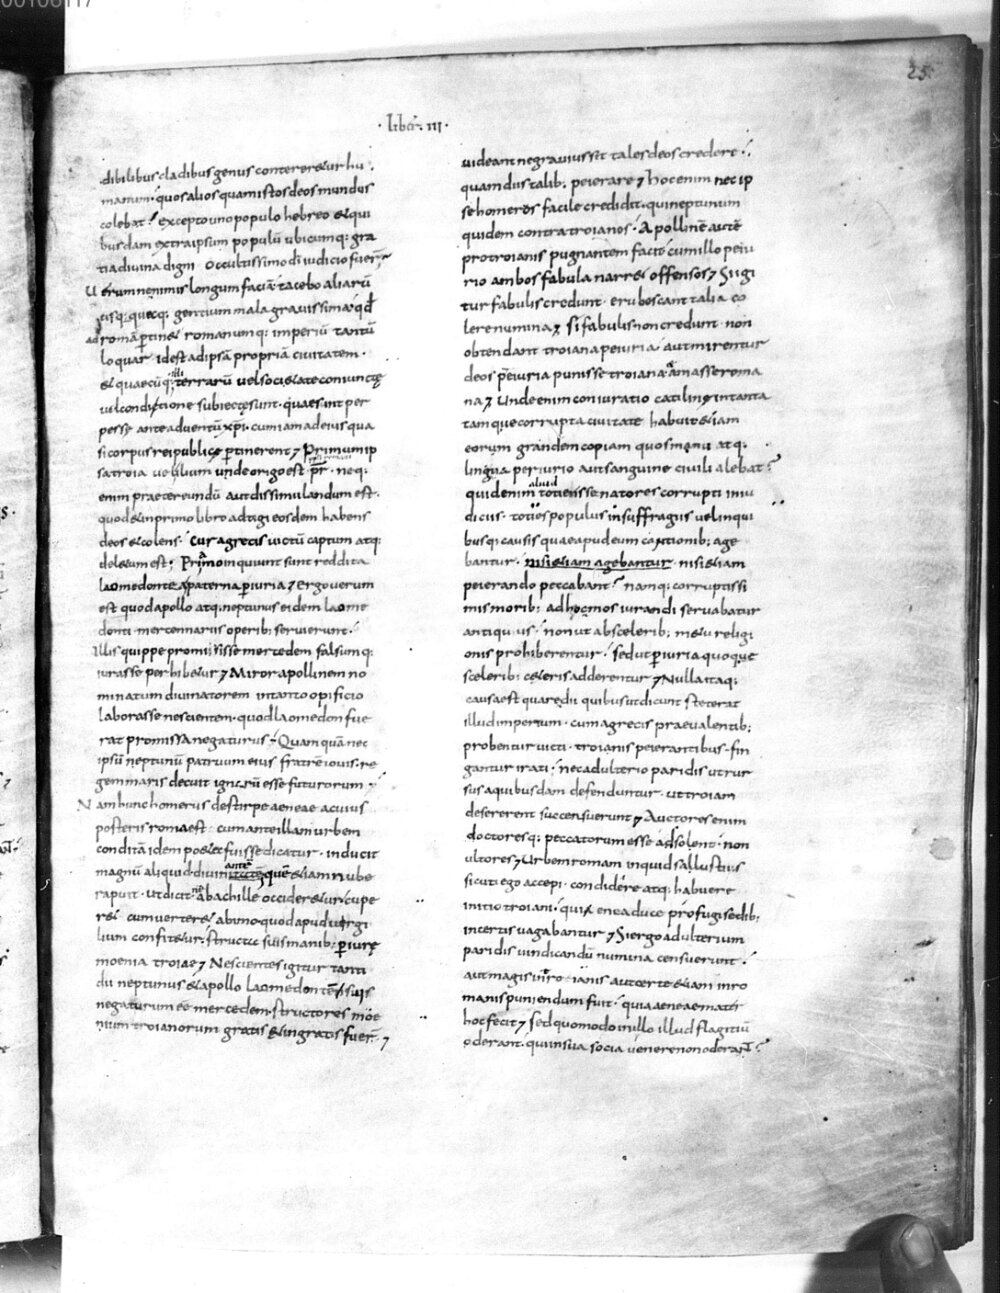 00106117
25
· liber · III ·
dibilibus cladibus genus conteretur hu
manum · quos alios quam istos deos mundus
colebat ? excepto uno populo hebreo & qui
busdam extra ipsum populū ubicumq; gra
tia diuina digni occultissimo di iudicio fuer̄
Uerum ne nimis longum faciā tacebo aliarū
usq;quaq; gentium mala grauissima · qđ
ad romā ptinet romanumq; imperiū tantū
loquar id est ad ipsā propriā ciuitatem ·
& quaecūq; illi terrarū uel societate coniunctę
uel condictione subiectę sunt · quae sint per
pesse ante aduentū xp̄i · cum iam ad eius qua
si corpus rei publicę ptinerent Primum ip
sa troia uel ilium unde origo est · neq;
enim praetereundū aut dissimulandum est ·
quod & in primo libro adtigi eosdem habens
deos & colens · Cur a grecis uictū captum atq;
deletum est ; Priamo inquiunt sunt reddita
laomedontea paterna piuria Ergo uerum
est quod apollo atq; neptunus eidem laome
donti mercennariis operib; seruierunt ·
Illis quippe promisisse mercedem falsumq;
iurasse perhibetur Miror apollinem no
minatum diuinatorem in tanto opificio
laborasse nescientem · quod laomedon fue
rat promissa negaturus · Quamquā nec
ipsū neptunū patruum eius fratrē iouis · re
gem maris decuit ignarū esse futurorum
Nam hunc homerus de stirpe aeneae a cuius
posteris roma est · cum ante illam urbem
conditā idem poeta fuisse dicatur · inducit
magnū aliquid diuinantē quē etiam nube
rapuit · ut dicit ne ab achille occideretur · cupe
ret cum uertere ab imo quod apud uirgi
lium confitetur · structa suis manib; piurę
moenia troiae Nescientes igitur tanti
dii neptunus & apollo laomedontē sibi
negaturum eē mercedem · structores moe
nium troianorum gratis & ingratis fuer̄
uideant ne grauius sit tales deos credere ·
quam diis talib; peierare hoc enim nec ip
se homerus facile credidit · qui neptunum
quidem contra troianos · Apollinē autē
pro troianis pugnantem facit · cum illo peiu
rio ambos fabula narret offensos Si igi
tur fabulis credunt · erubescant talia co
lere numina · si fabulis non credunt · non
obtendant troiana peiuria · aut mirentur
deos peiuria punisse troiana · amasse roma
na Unde enim coniuratio catilinę in tanta
tamque corrupta ciuitate habuit etiam
eorum grandem copiam quos manu atq;
lingua periurio aut sanguine ciuili alebat ?
quid enim aliud totiens senatores corrupti in iu
diciis · toties populus in suffragiis uel in qui
busq; causis quae apud eum contionib; age
bantur · nisi etiam agebantur · nisi etiam
peierando peccabant ? namq; corruptissi
mis morib; ad hoc mos iurandi seruabatur
antiquus · non ut ab sceleri b; metu religi
onis prohiberentur · sed ut piuria quoque
sceleri b; ceteris adderentur Nulla itaq;
causa est quare dii quibus ut dicunt steterat
illud imperium · cum a grecis praeualentib;
probentur uicti · troianis peierantibus · fin
gantur irati · nec adulterio paridis ut rur
sus a quibusdam defenduntur · ut troiam
desererent succensuerunt Auctores enim
doctoresq; peccatorum esse adsolent · non
ultores Urbem romam inquid sallustius
sicut ego accepi · condidere atq; habuere
initio troiani · qui aenea duce profugi sedib;
incertis uagabantur Si ergo adulterium
paridis uindicandū numina censuerunt ·
aut magis in romanis aut certe etiam in ro
manis puniendum fuit · quia aeneae mater
hoc fecit sed quomodo in illo illud flagitiū
oderant · qui in sua socia uenere non oderant ?